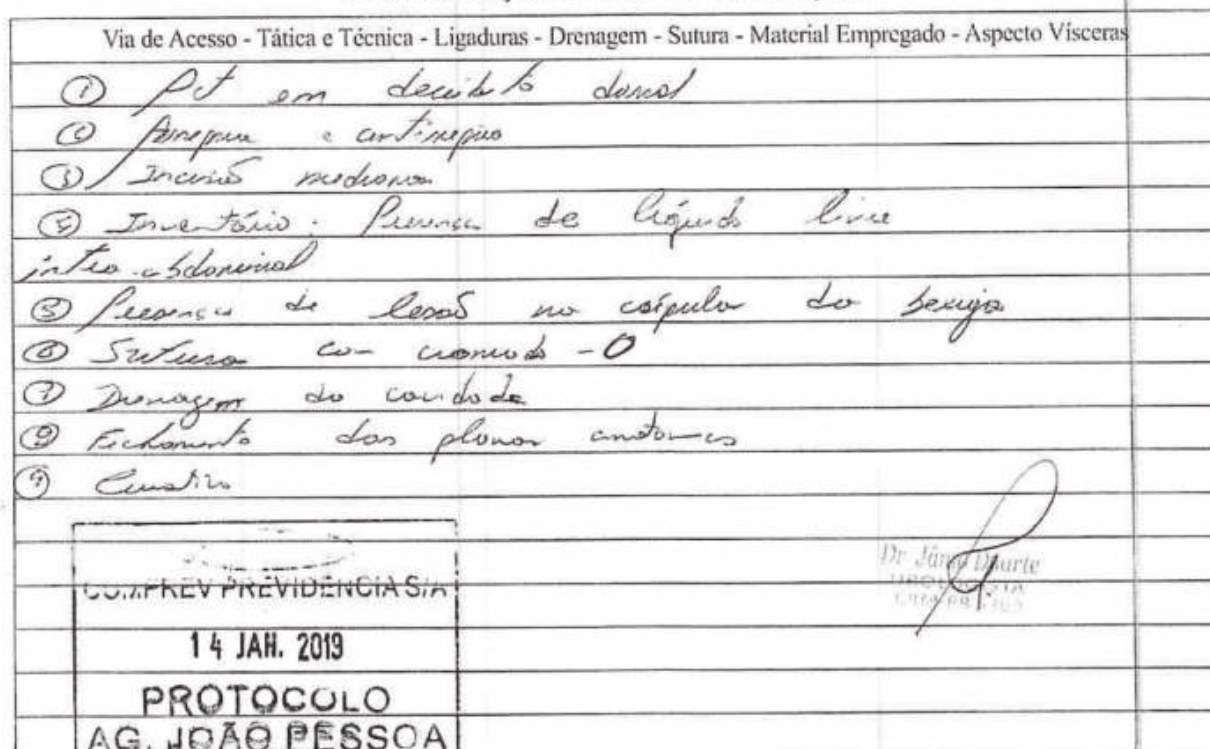 Via de Acesso - Tática e Técnica - Ligaduras - Drenagem - Sutura - Material Empregado - Aspecto Vísceras
① Pct em decúbito dorsal
② Assepsia e antissepsia
③ Incisão mediana
④ Inventário: Presença de líquido livre
intra-abdominal
⑤ Presença de lesão na cúpula da bexiga
⑥ Sutura com cromado - 0
⑦ Drenagem da cavidade
⑧ Fechamento dos planos anatomicos
⑨ Curativo
COMPREV PREVIDÊNCIA S/A
14 JAN. 2019
PROTOCOLO
AG. JOÃO PESSOA
Dr Duarte
UROLOGISTA